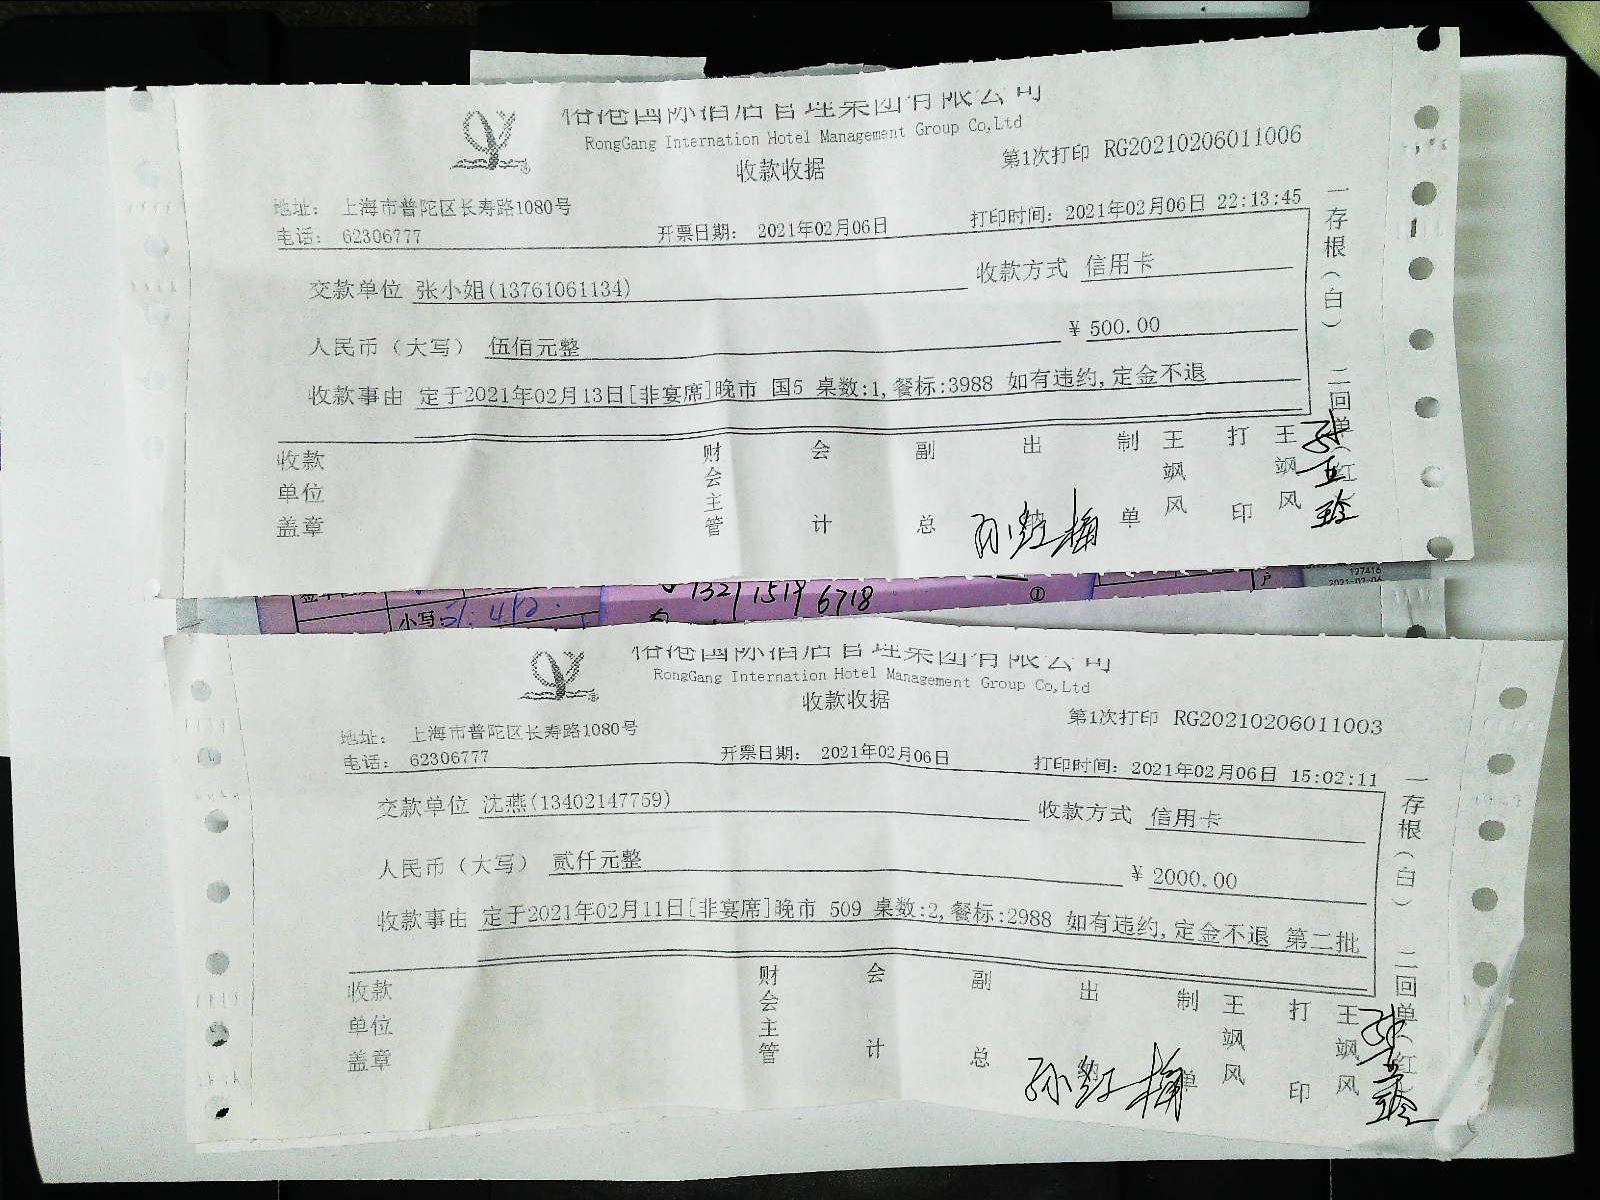 俗港国际酒店管理集团有限公司
RongGang Internation Hotel Management Group Co,Ltd
收款收据
第1次打印 RG20210206011006
地址： 上海市普陀区长寿路1080号
电话： 62306777
开票日期： 2021年02月06日
打印时间：2021年02月06日 22:13:45
交款单位 张小姐(13761061134)
收款方式 信用卡
人民币（大写） 伍佰元整
¥ 500.00
收款事由 定于2021年02月13日[非宴席]晚市 国5 桌数:1,餐标:3988 如有违约,定金不退
一存根（白） 二回单（红）
收款单位盖章
财会主管
会计
副总
出纳
孙红梅
制单
王飒风
打印
王飒风
小写:
1321 1519 6718
①
户
177416
2021-02-06
俗港国际酒店管理集团有限公司
RongGang Internation Hotel Management Group Co,Ltd
收款收据
第1次打印 RG20210206011003
地址： 上海市普陀区长寿路1080号
电话： 62306777
开票日期： 2021年02月06日
打印时间：2021年02月06日 15:02:11
交款单位 沈燕(13402147759)
收款方式 信用卡
人民币（大写） 贰仟元整
¥ 2000.00
收款事由 定于2021年02月11日[非宴席]晚市 509 桌数:2,餐标:2988 如有违约,定金不退 第二批
一存根（白） 二回单（红）
收款单位盖章
财会主管
会计
副总
出纳
孙红梅
制单
王飒风
打印
王飒风